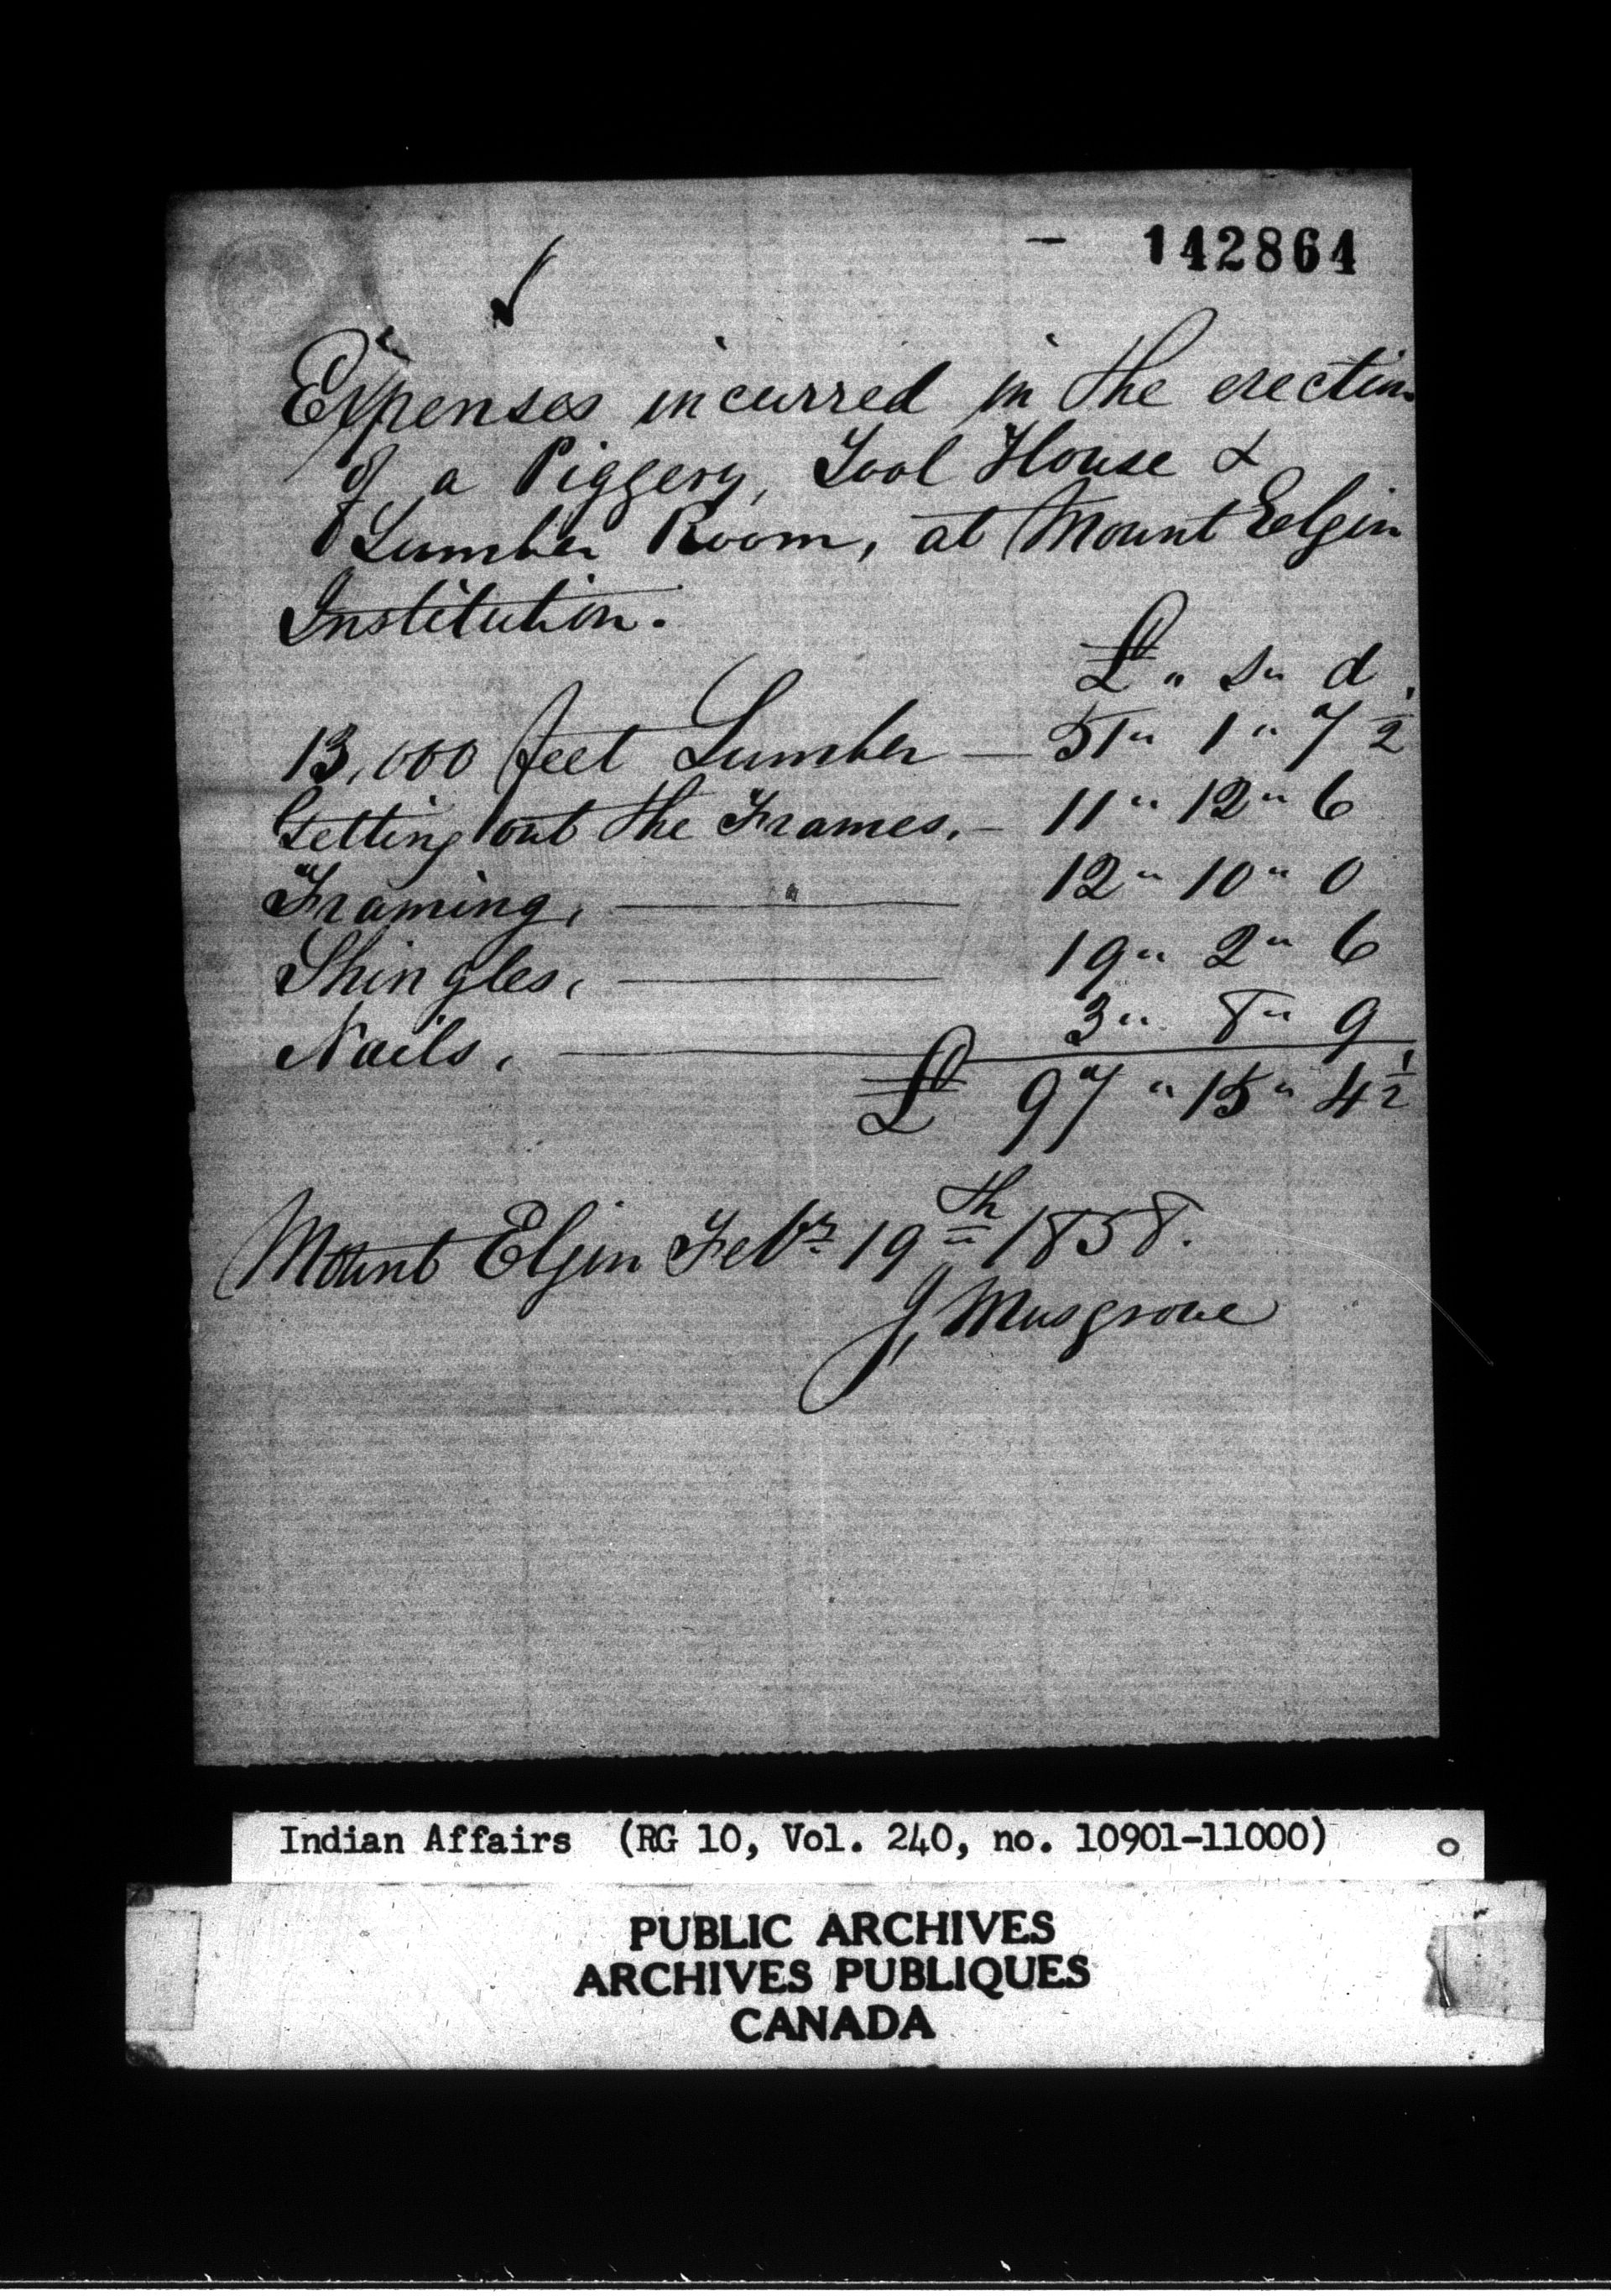 142864
Expenses incurred in the erection
of a Piggery, Tool House &
Lumber Room, at Mount Eelgin
Institution.
£ " s " d
13,000 feet Lumber — 51 " 1 " 7 1/2
Getting out the Frames. — 11 " 12 " 6
Framing, — 12 " 10 " 0
Shingles, — 19 " 2 " 6
Nails, — 3 " 8 " 9
£ 97 " 15 " 4 1/2
Mount Elgin Feby 19th 1858.
J, Musgrove
Indian Affairs (RG 10, Vol. 240, no. 10901-11000)
PUBLIC ARCHIVES
ARCHIVES PUBLIQUES
CANADA